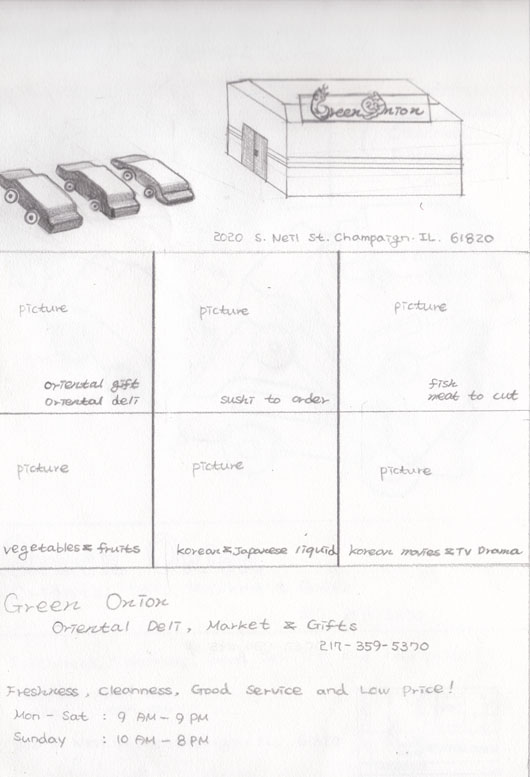 Green Onion
2020 S. Neil St. Champaign. IL. 61820
picture
oriental gift
oriental deli
picture
sushi to order
picture
fish
meat to cut
picture
vegetables & fruits
picture
korean & Japanese liquid
picture
korean movies & TV Drama
Green Onion
Oriental Deli, Market & Gifts
217-359-5370
Freshness, Cleanness, Good Service and Low Price!
Mon - Sat : 9 AM - 9 PM
Sunday : 10 AM - 8 PM